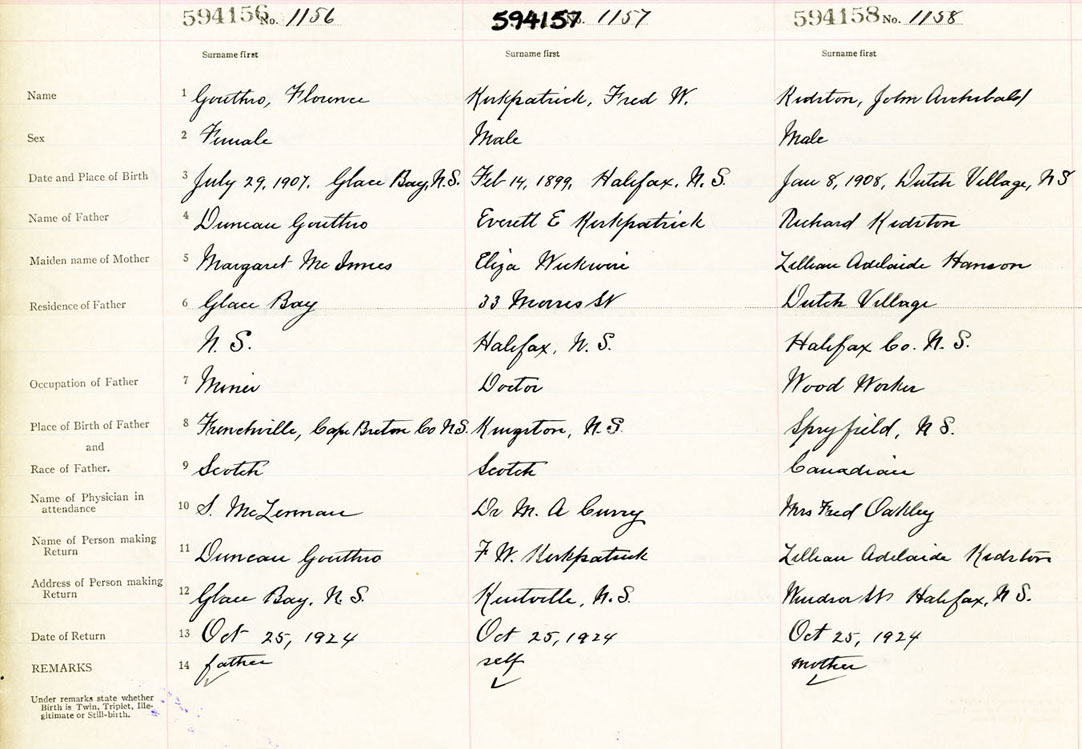 594156 No. 1156 594157 No. 1157 594158 No. 1158
Surname first Surname first Surname first
Name 1 Gouthro, Florence Kirkpatrick, Fred W. Kidston, John Archibald
Sex 2 Female Male Male
Date and Place of Birth 3 July 29, 1907. Glace Bay, N.S. Feb 14, 1899, Halifax, N. S. Jan 8, 1908, Dutch Village, N S
Name of Father 4 Duncan Gouthro Everett E Kirkpatrick Richard Kidston
Maiden name of Mother 5 Margaret Mc Innes Eliza Wickwire Lillian Adelaide Hanson
Residence of Father 6 Glace Bay 33 Morris St Dutch Village
N. S. Halifax, N. S. Halifax Co. N. S.
Occupation of Father 7 Miner Doctor Wood Worker
Place of Birth of Father 8 Frenchville, Cape Breton Co N.S. Kingston, N.S. Spryfield, N S.
and
Race of Father. 9 Scotch Scotch Canadian
Name of Physician in
attendance 10 S. McLennan Dr M. A Curry Mrs Fred Oakley
Name of Person making
Return 11 Duncan Gouthro F W. Kirkpatrick Lillian Adelaide Kidston
Address of Person making
Return 12 Glace Bay, N. S. Kentville, N.S. Windsor St Halifax, N S.
Date of Return 13 Oct 25, 1924 Oct 25, 1924 Oct 25, 1924
REMARKS 14 father self mother
Under remarks state whether
Birth is Twin, Triplet, Ille-
gitimate or Still-birth.